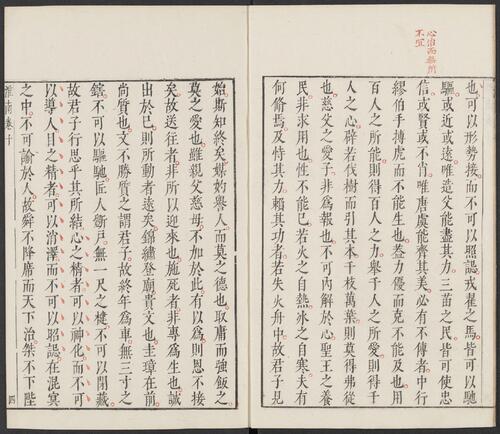 也可以形勢接而不可以照誋戎翟之馬皆可以馳
驅或近或遠唯造父能盡其力三苗之民皆可使忠
信或賢或不肖唯唐虞能齊其美必有不傳者中行
繆伯手搏虎而不能生也葢力優而克不能及也用
百人之所能則得百人之力舉千人之所愛則得千
人之心辟若伐樹而引其本千枝萬葉則莫得弗從
也慈父之愛子非為報也不可內解於心聖王之養
民非求用也性不能已若火之自熱冰之自寒夫有
何脩焉及恃其力賴其功者若失火舟中故君子見
始斯知終矣媒妁譽人而莫之德也取庸而強飯之
莫之愛也雖親父慈母不加於此有以為則恩不接
矣故送往者非所以迎來也施死者非專為生也誠
出於已則所動者遠矣錦繡登廟貴文也圭璋在前
尚質也文不勝質之謂君子故終年為車無三寸之
鎋不可以驅馳匠人斵戶無一尺之楗不可以閉藏
故君子行思乎其所結心之精者可以神化而不可
以導人目之精者可以消澤而不可以昭誋在混冥
之中不可諭於人故舜不降席而天下治桀不下陛
淮南卷十 四